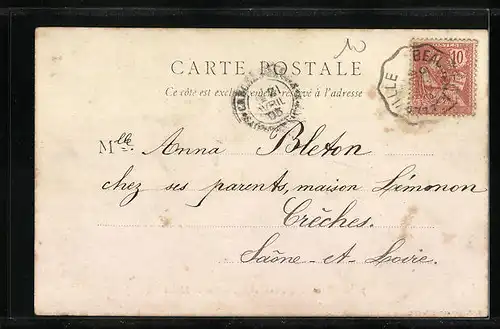 10
CARTE POSTALE
Ce côté est exclusivement réservé à l'adresse
AVRIL
BEAU
VILLE
Mlle Anna Bleton
chez ses parents, maison Limonon
Crêches.
Saône-et-Loire.